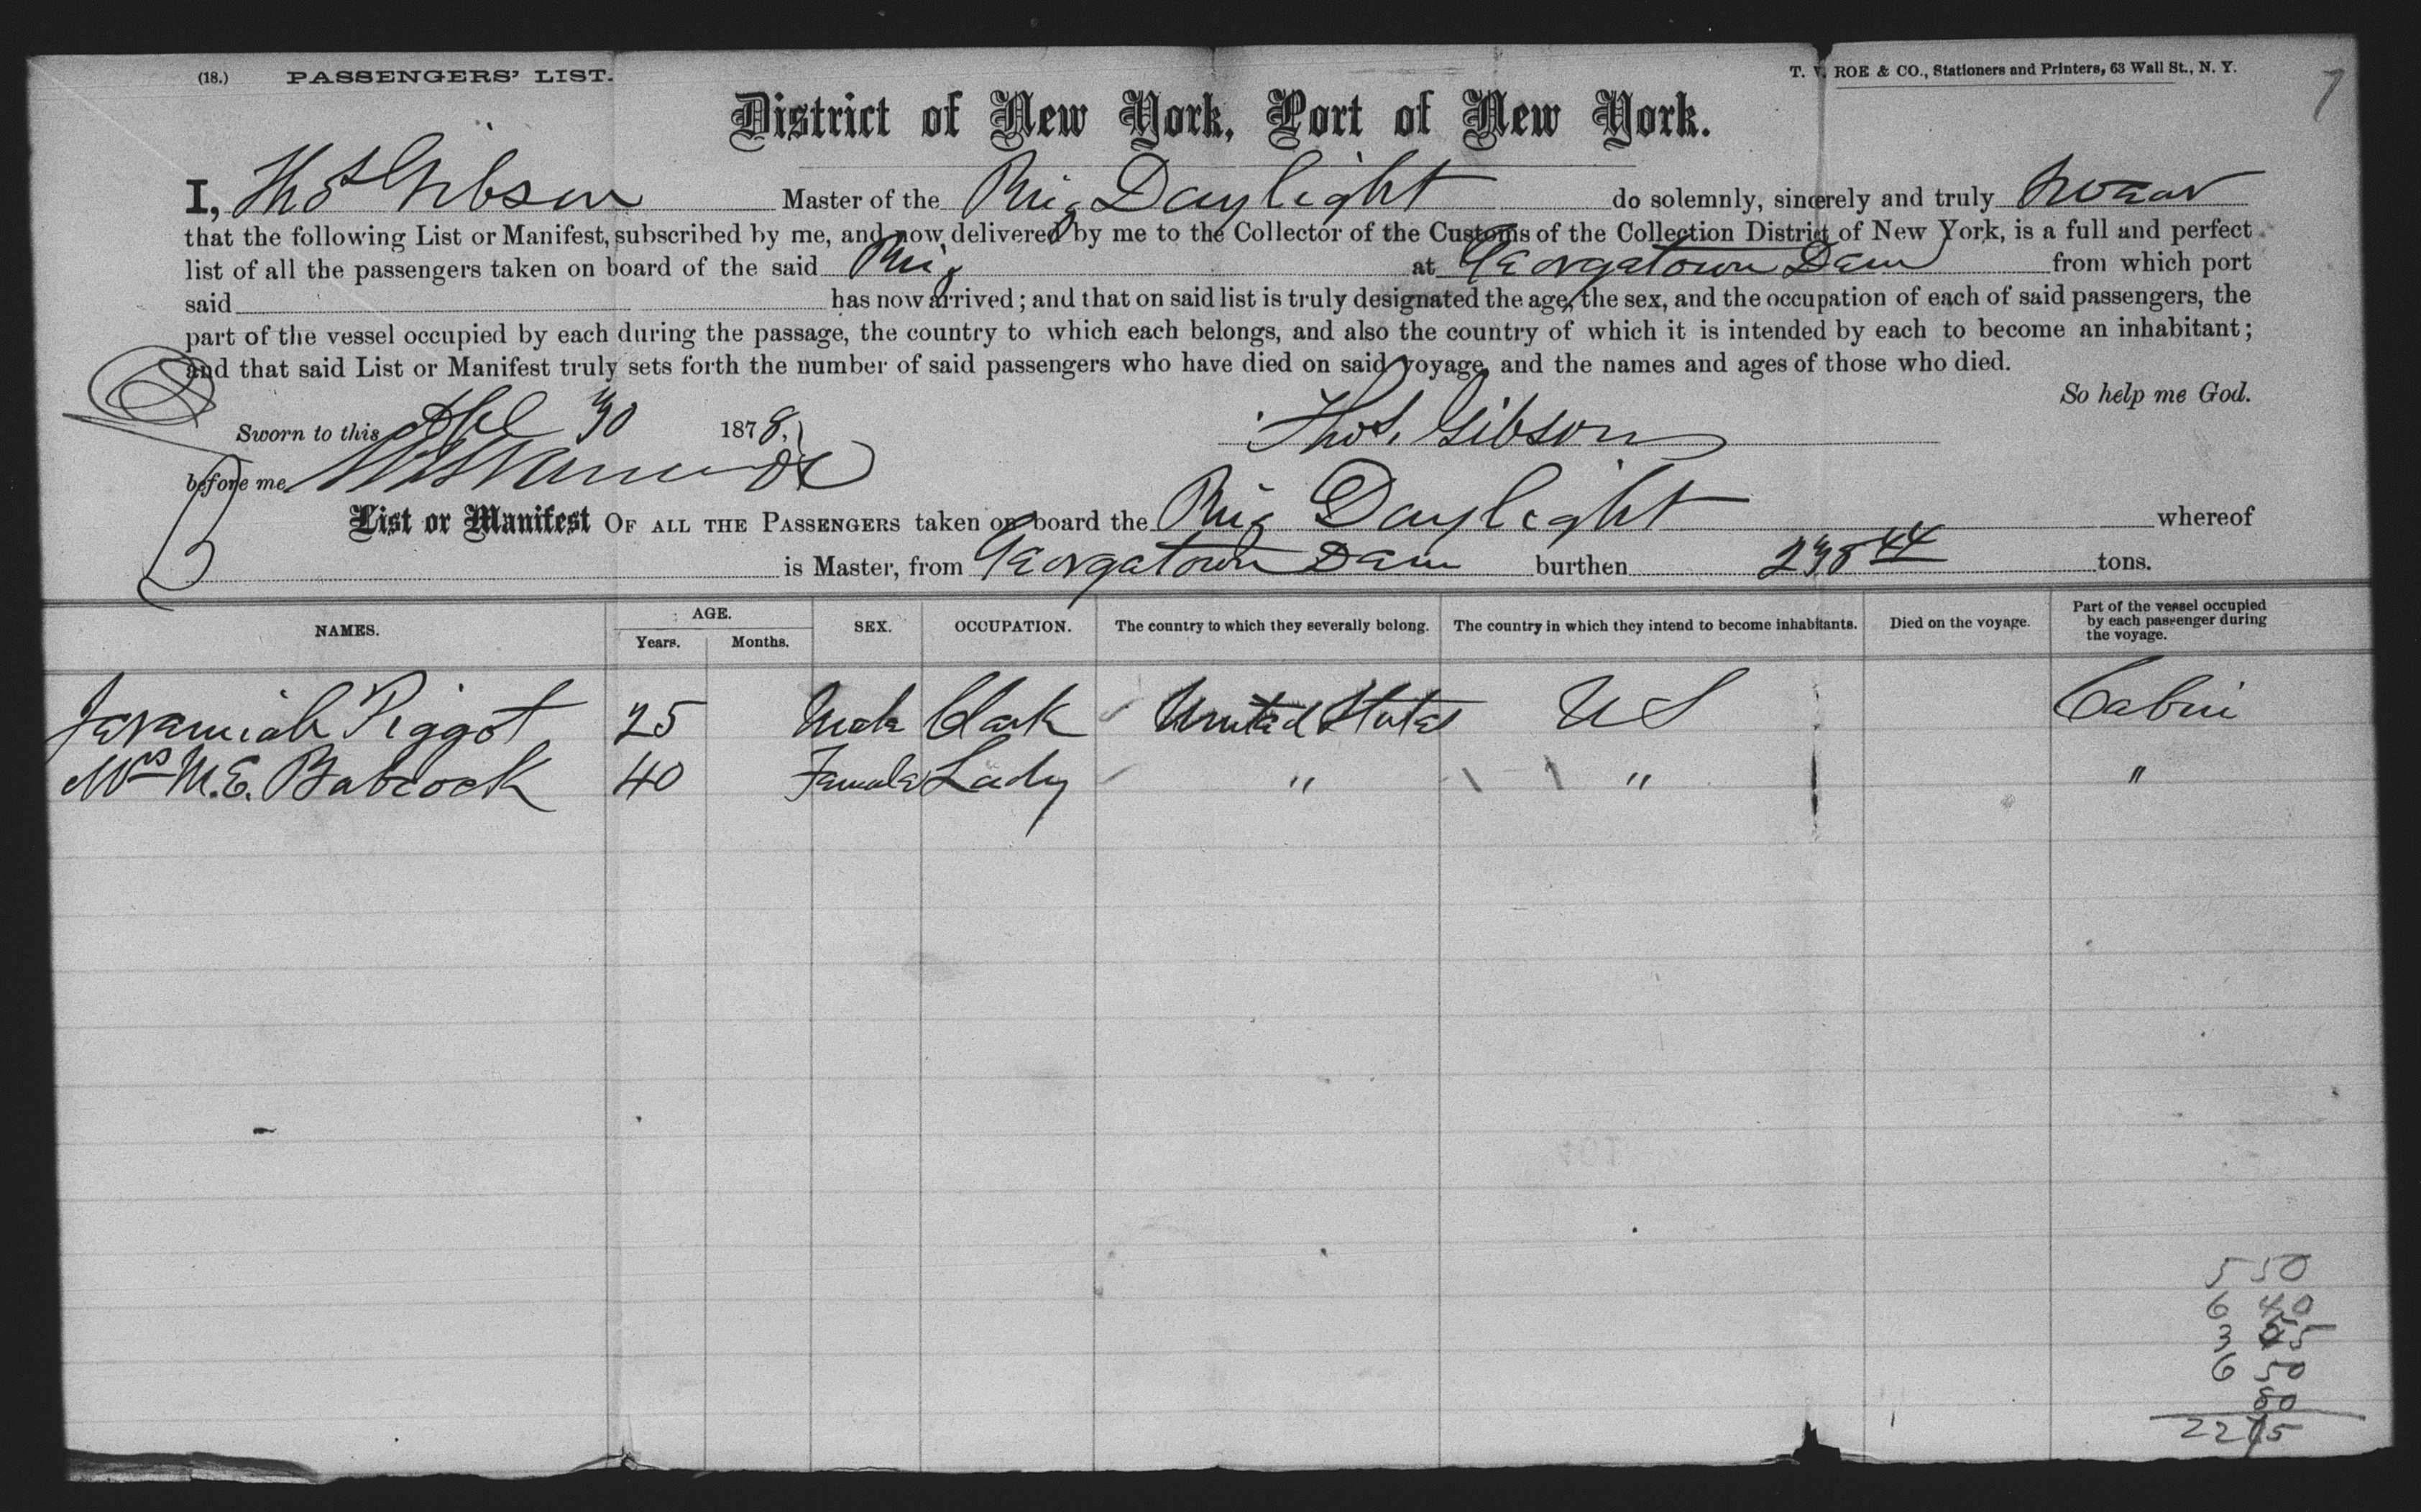 (18.) PASSENGERS' LIST.
T. V. ROE & CO., Stationers and Printers, 63 Wall St., N. Y.
7
District of New York, Port of New York.
I, Thos Gibson Master of the Brig Daylight do solemnly, sincerely and truly swear
that the following List or Manifest, subscribed by me, and now delivered by me to the Collector of the Customs of the Collection District of New York, is a full and perfect
list of all the passengers taken on board of the said Brig at Georgetown Dem from which port
said has now arrived; and that on said list is truly designated the age, the sex, and the occupation of each of said passengers, the
part of the vessel occupied by each during the passage, the country to which each belongs, and also the country of which it is intended by each to become an inhabitant;
and that said List or Manifest truly sets forth the number of said passengers who have died on said voyage, and the names and ages of those who died.
So help me God.
Sworn to this 30 1878,
Thos. Gibson
before me
List or Manifest OF ALL THE PASSENGERS taken on board the Brig Daylight whereof
is Master, from Georgetown Dem burthen 238 44 tons.
NAMES. AGE. Years. Months. SEX. OCCUPATION. The country to which they severally belong. The country in which they intend to become inhabitants. Died on the voyage. Part of the vessel occupied by each passenger during the voyage.
Jeremiah Piggot 25 Male Clerk United States U S Cabin
Mrs M.E. Babcock 40 Female Lady " " "
5 50
6 40
3
6 50
80